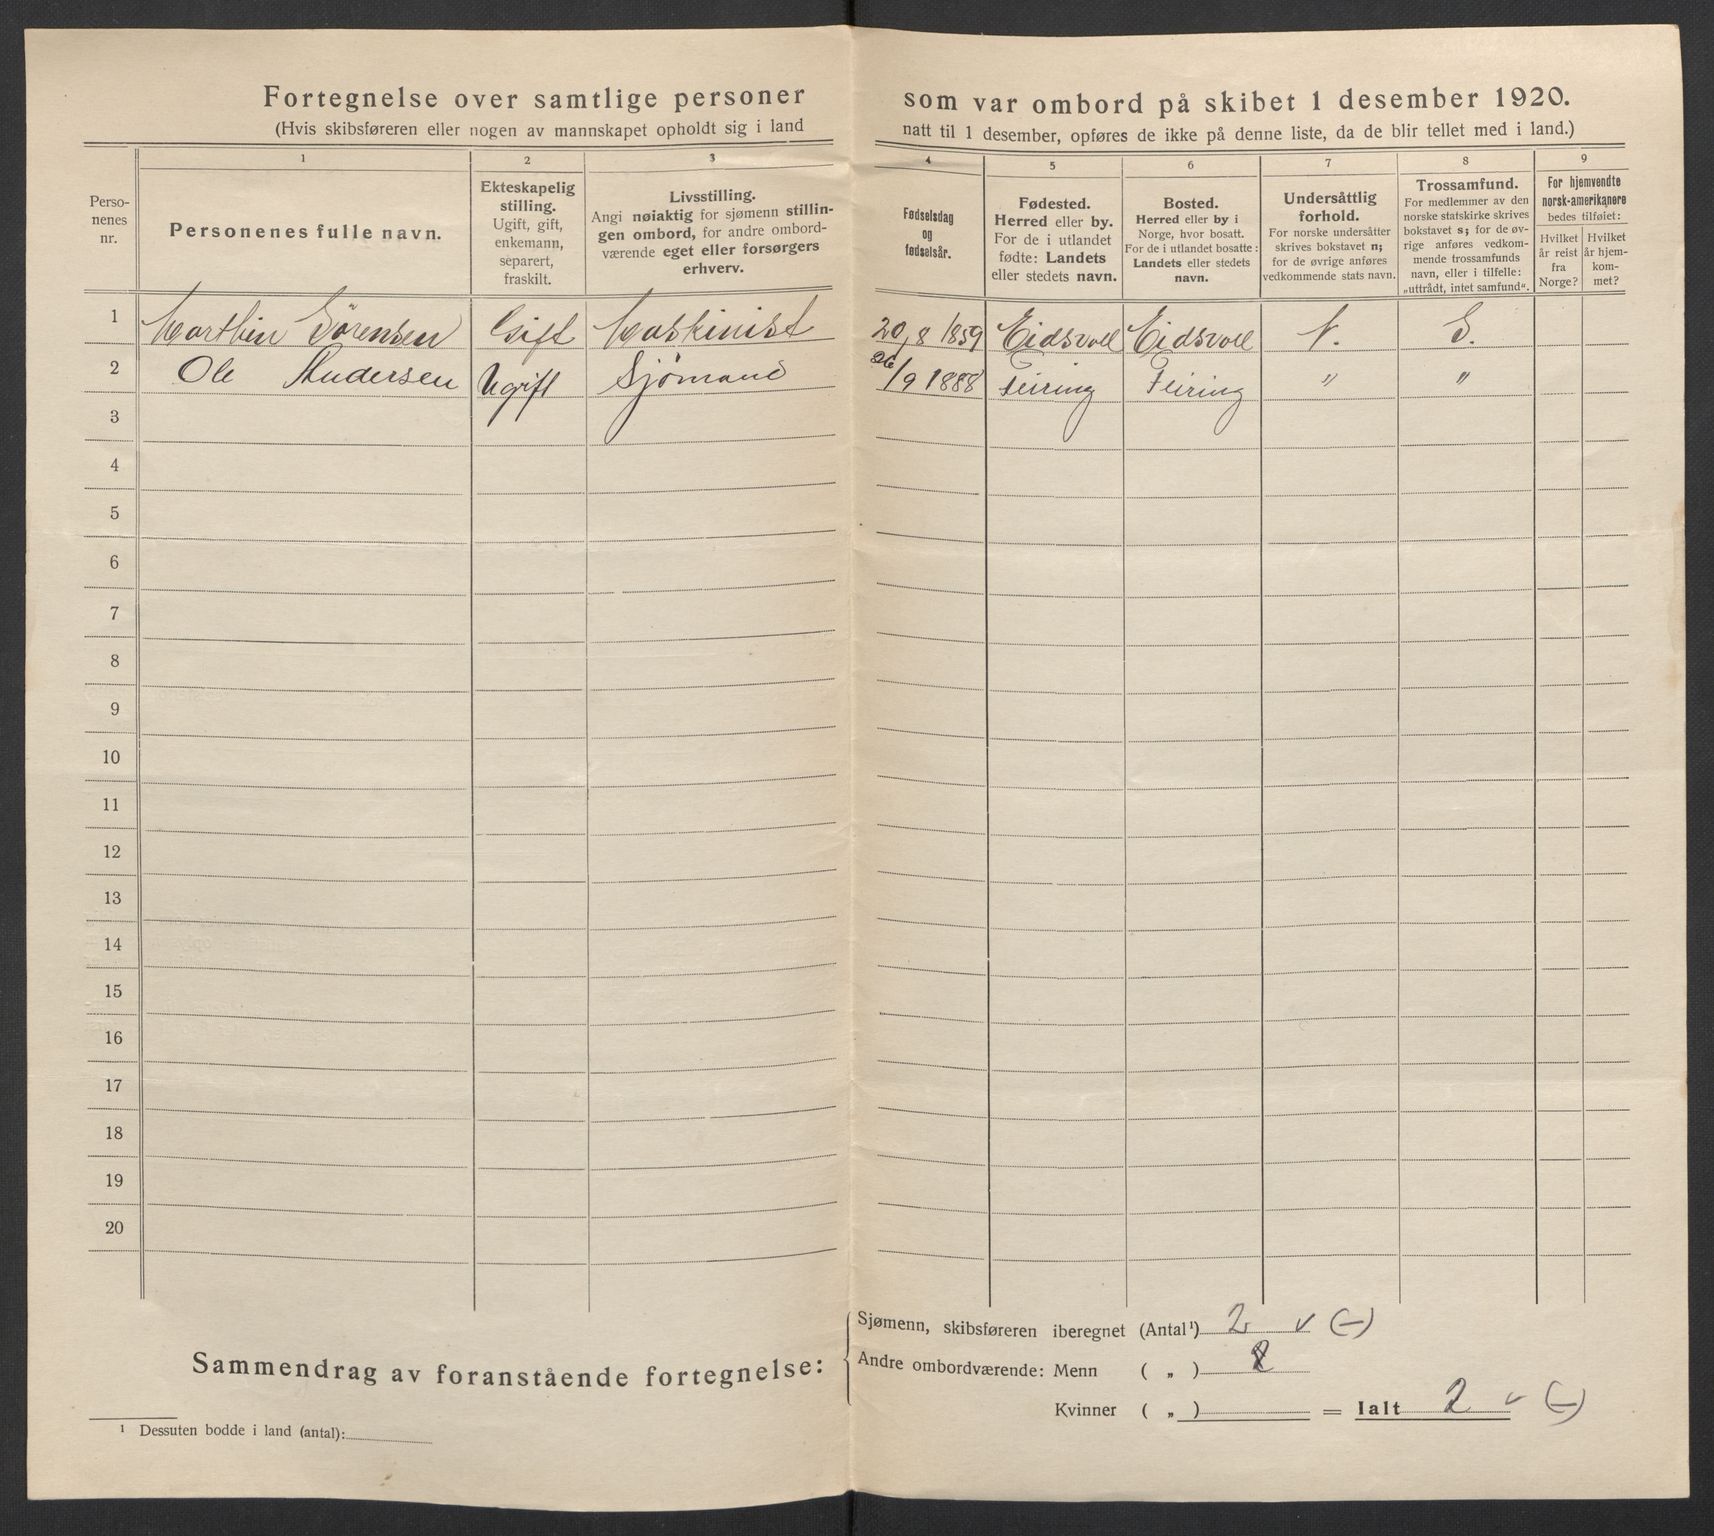 Fortegnelse over samtlige personer som var ombord på skibet 1 desember 1920.
(Hvis skibsføreren eller nogen av mannskapet opholdt sig i land natt til 1 desember, opføres de ikke på denne liste, da de blir tellet med i land.)
1 2 3 4 5 6 7 8 9
Perso-
nenes
nr.
Personenes fulle navn.
Ekteskapelig
stilling.
Ugift, gift,
enkemann,
separert,
fraskilt.
Livsstilling.
Angi nøiaktig for sjømenn stillin-
gen ombord, for andre ombord-
værende eget eller forsørgers
erhverv.
Fødselsdag
og
fødselsår.
Fødested.
Herred eller by.
For de i utlandet
fødte: Landets
eller stedets navn.
Bosted.
Herred eller by i
Norge, hvor bosatt.
For de i utlandet bosatte:
Landets eller stedets
navn.
Undersåttlig
forhold.
For norske undersåtter
skrives bokstavet n;
for de øvrige anføres
vedkommende stats navn.
Trossamfund.
For medlemmer av den
norske statskirke skrives
bokstavet s; for de øv-
rige anføres vedkom-
mende trossamfunds
navn, eller i tilfelle:
„uttrådt, intet samfund“.
For hjemvendte
norsk-amerikanere
bedes tilføiet:
Hvilket
år reist
fra
Norge?
Hvilket
år hjem-
kom-
met?
1 Marthin Sörensen Gift Maskinist 20/8 1859 Eidsvoll Eidsvoll N. S.
2 Ole Andersen Ugift Sjömand 26/9 1888 Feiring Feiring " "
3
4
5
6
7
8
9
10
11
12
13
14
15
16
17
18
19
20
Sammendrag av foranstående fortegnelse:
Sjømenn, skibsføreren iberegnet (Antal¹) 2 v (–)
Andre ombordværende: Menn ( „ )
Kvinner ( „ ) = Ialt 2 v (–)
¹ Dessuten bodde i land (antal):